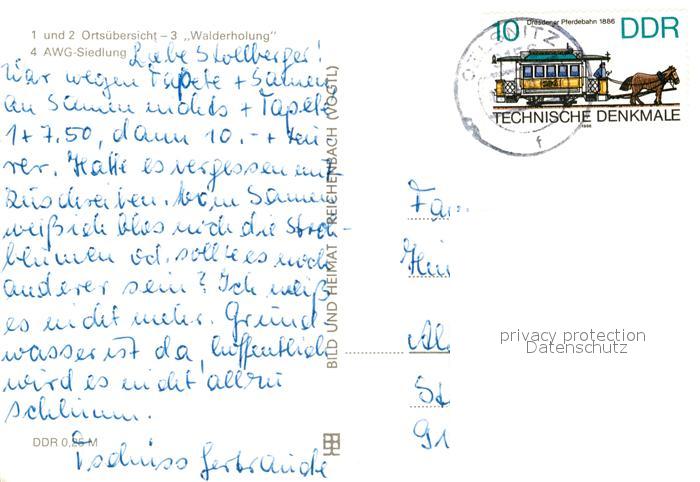 1 und 2 Ortsübersicht – 3 „Walderholung"
4 AWG-Siedlung
Liebe Stollberger!
War wegen Tapete + Samen
an Samen nichts + Tapete
1 + 7.50, dann 10.- + teu
rer. Hatte es vergessen mit
zuschreiben. Vom Samen
weiß ich blos noch die Stroh-
blumen od. sollte es noch
anderer sein? Ich weiß
es nicht mehr. Grund
wasser ist da, hoffentlich
wird es nicht allzu
schlimm.
Tschüss Gertraude
DDR 0,25 M
BILD UND HEIMAT REICHENBACH (VOGTL)
10 Dresdener Pferdebahn 1886 DDR
TECHNISCHE DENKMALE
1986
OELSNITZ
f
Fa
privacy protection
Datenschutz
St